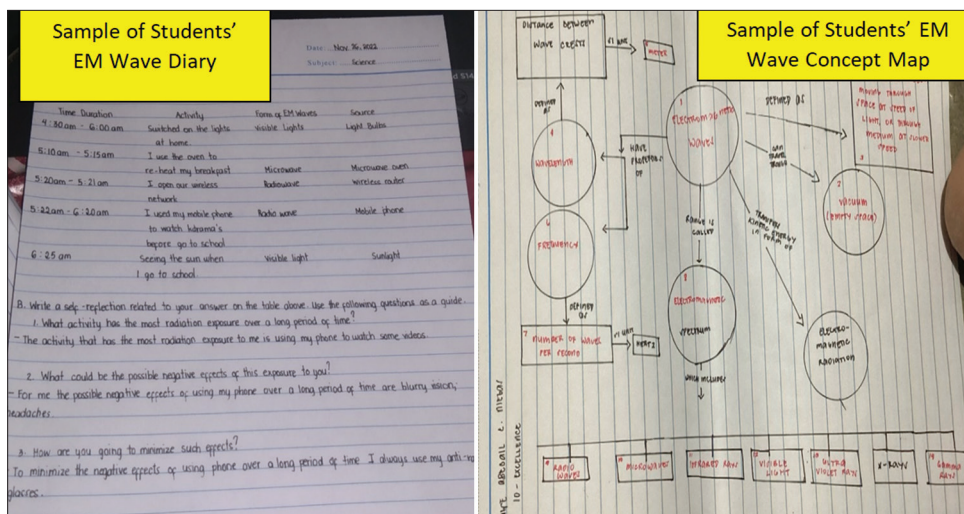 Sample of Students'
EM Wave Diary
Date: Nov. 26, 2022
Subject: Science
Time Duration Activity Form of EM Waves Source
4:30am - 6:00am Switched on the lights Visible Lights Light Bulbs
at home.
5:10am - 5:15am I use the oven to
re-heat my breakfast Microwave Microwave oven
5:20am - 5:21am I open our wireless Radiowave wireless router
network
5:22am - 6:20am I used my mobile phone Radio wave Mobile phone
to watch kdrama's
before go to school
6:25am Seeing the sun when Visible light Sunlight
I go to school.
B. Write a self-reflection related to your answer on the table above. Use the following questions as a guide.
1. What activity has the most radiation exposure over a long period of time?
- The activity that has the most radiation exposure to me is using my phone to watch some videos.
2. What could be the possible negative effects of this exposure to you?
- For me the possible negative effects of using my phone over a long period of time are blurry vision,
headaches
3. How are you going to minimize such effects?
To minimize the negative effects of using phone over a long period of time I always use my anti-
glasses.
Sample of Students' EM
Wave Concept Map
DISTANCE BETWEEN
WAVE CRESTS
METER
DEFINED AS
4
WAVELENGTH
HAVE
PROPERTIES
OF
1
ELECTROMAGNETIC
WAVES
DEFINED AS
MOVING THROUGH
SPACE AT SPEED OF
LIGHT, OR THROUGH
MEDIUM AT SLOWER
SPEED
CAN
TRAVEL
2
VACUUM
(EMPTY SPACE)
6
FREQUENCY
DEFINED
AS
7 NUMBER OF WAVES
PER SECOND
HERTZ
RANGE IS
CALLED
8
ELECTROMAGNETIC
SPECTRUM
WHICH INCLUDES
TRANSFER
KINETIC ENERGY
IN FORM OF
ELECTRO-
MAGNETIC
RADIATION
RADIO
WAVES
MICROWAVES
INFRARED RAYS
VISIBLE
LIGHT
ULTRA
VIOLET RAYS
X-RAYS
GAMMA
RAYS
10 - EXCELLENCE